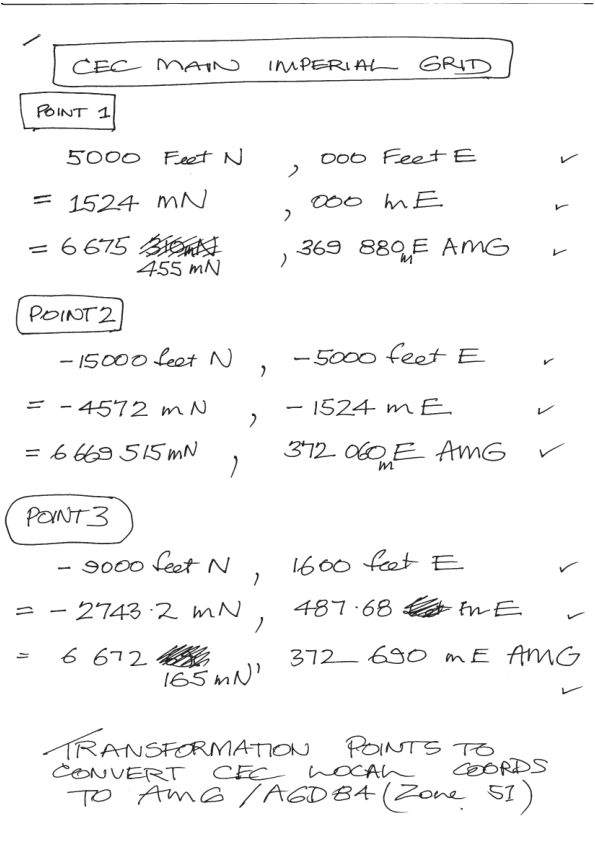 CEC MAIN IMPERIAL GRID
POINT 1
5000 Feet N , 000 Feet E ✓
= 1524 mN , 000 mE ✓
= 6 675 455 mN , 369 880 mE AMG ✓
POINT 2
-15000 feet N , -5000 feet E ✓
= -4572 mN , -1524 mE ✓
= 6 669 515 mN , 372 060 mE AMG ✓
POINT 3
- 9000 feet N , 1600 feet E ✓
= - 2743.2 mN , 487.68 mE ✓
= 6 672 165 mN , 372 690 mE AMG ✓
TRANSFORMATION POINTS TO
CONVERT CEC LOCAL COORDS
TO AMG / AGD84 (Zone 51)